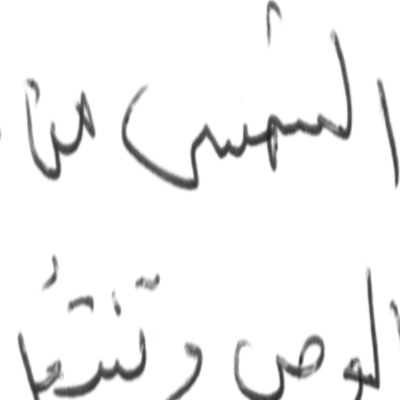 الشمس من
الوص و